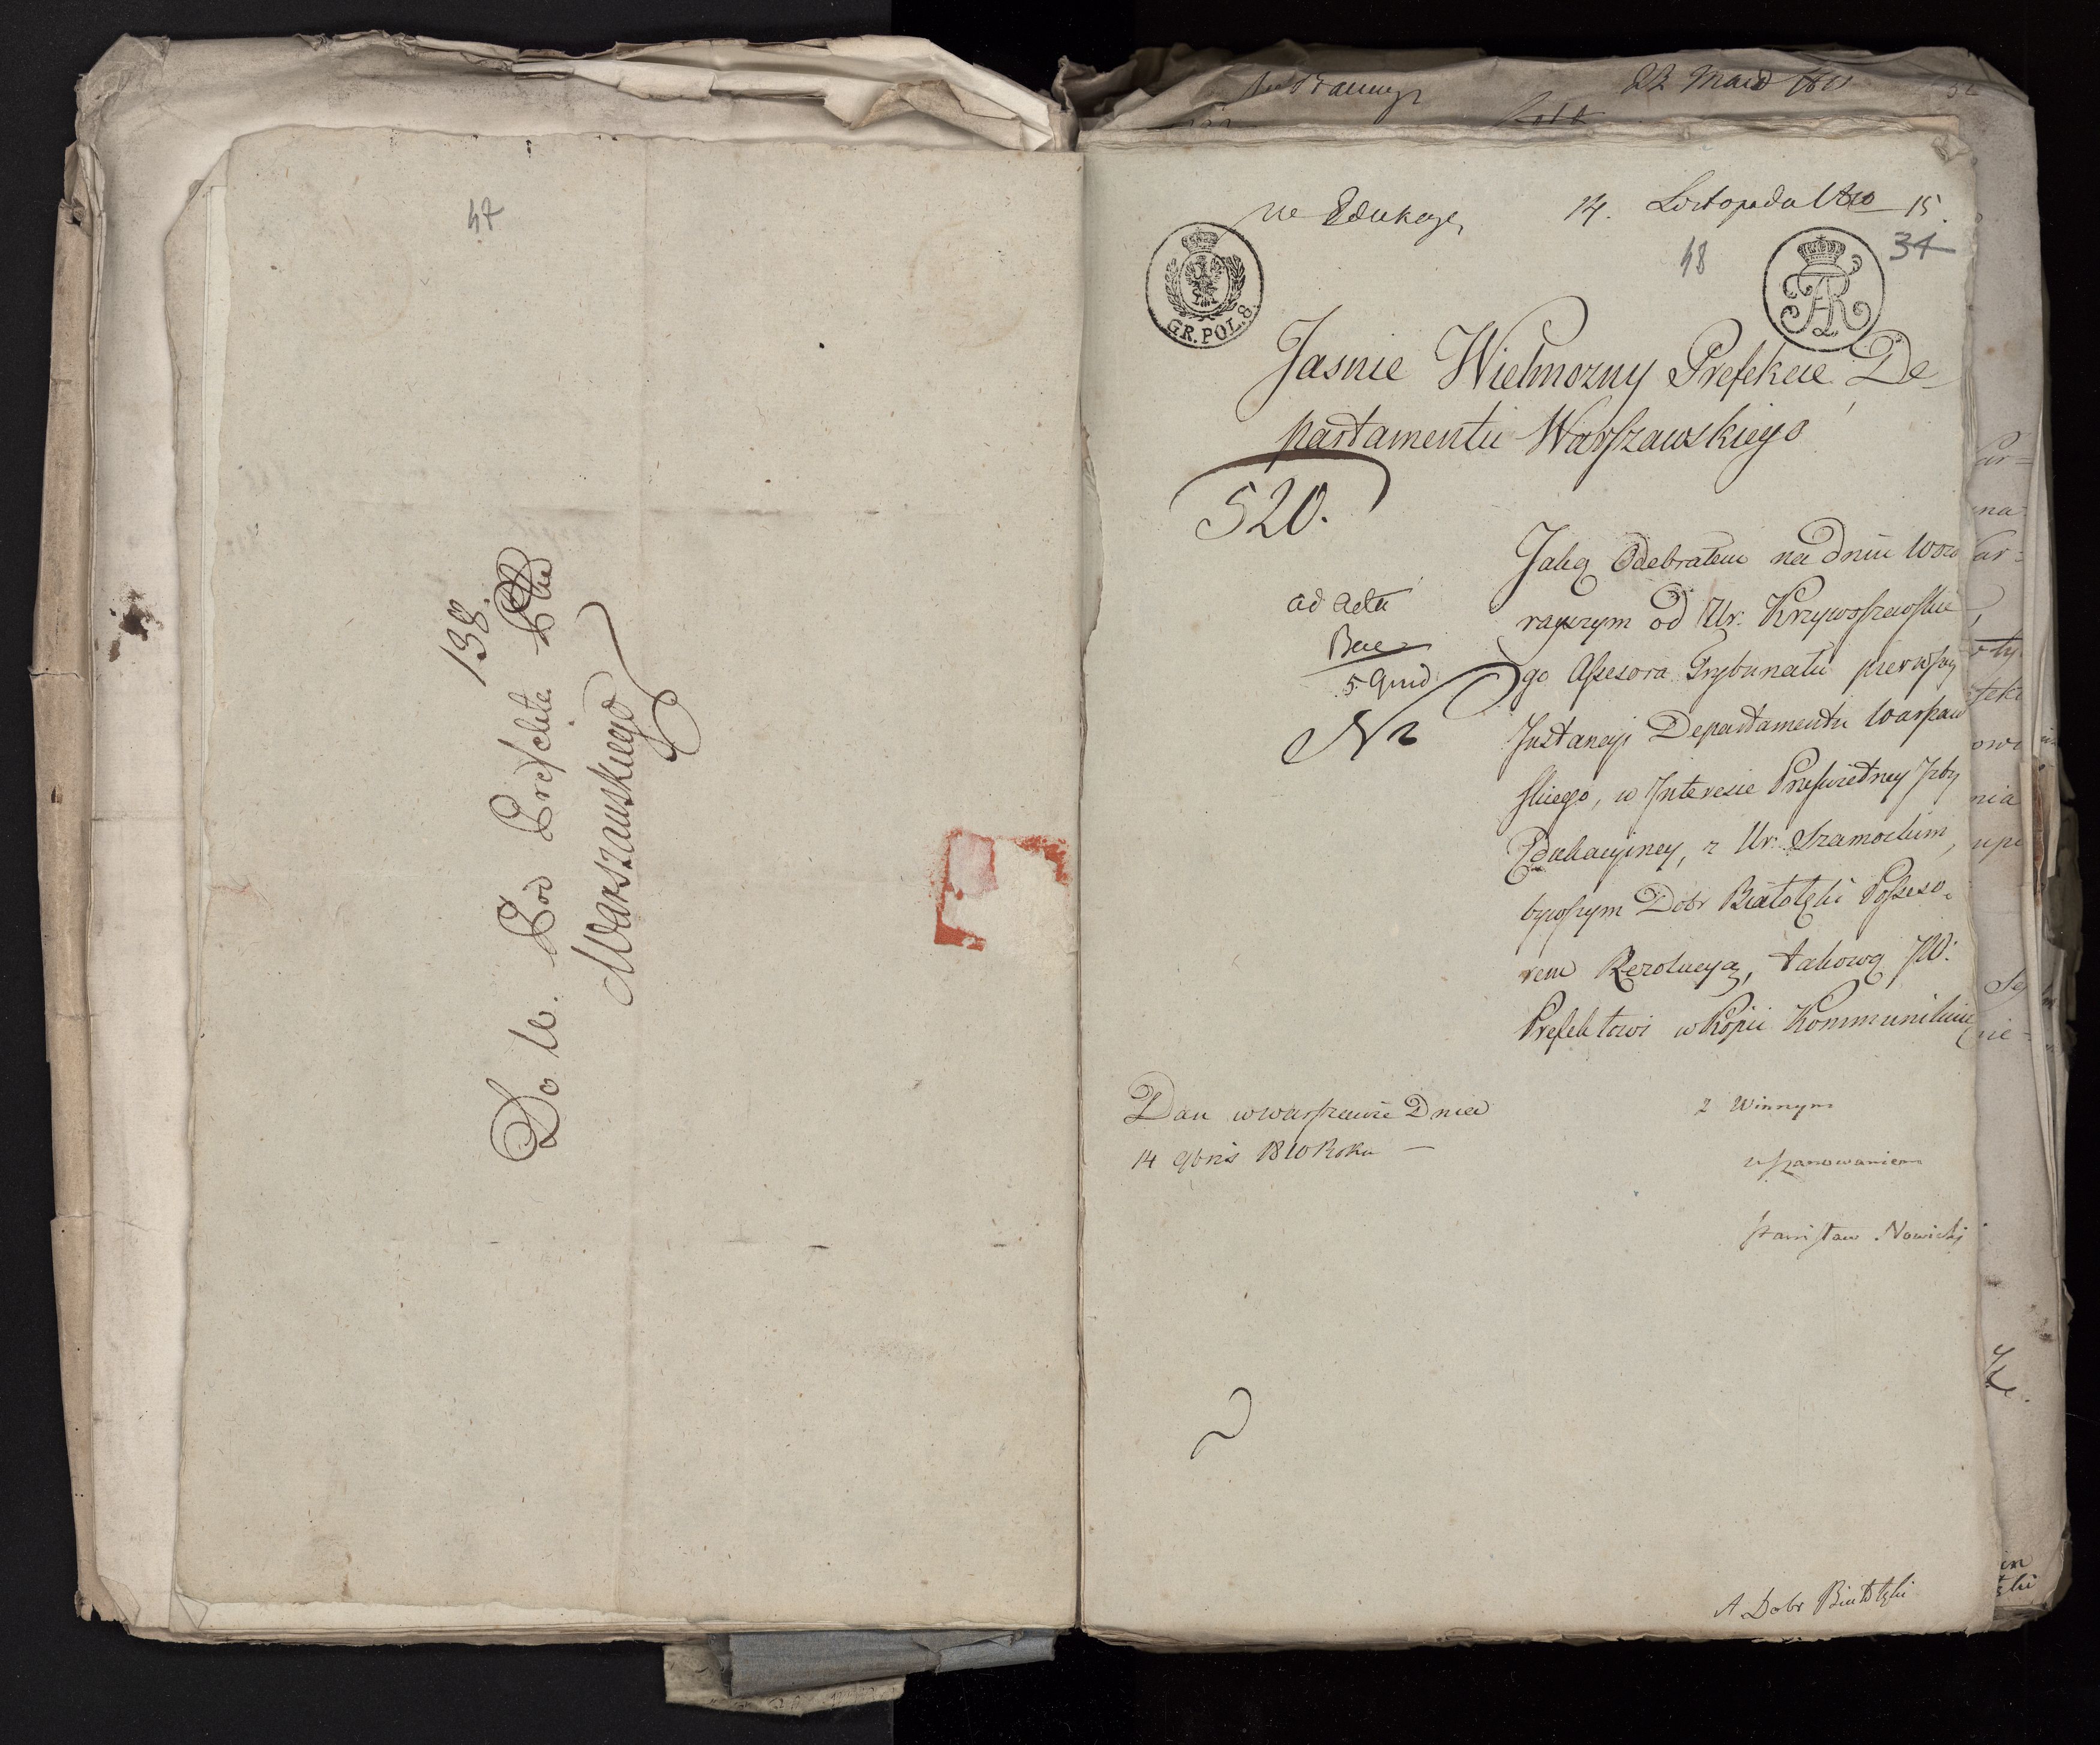 47
138.
Do W. Pod Prefekta Ptu
Warszawskiego
22 Maia 1811
we Edukacyi 14. Listopada 1810 15.
48
34
GR. POL. 8.
FAR
Jasnie Wielmozny Prefekcie De
partamentu Warszawskiego
520.
ad acta
5 Grud
Jaką Odebrałem na dniu wczo
rayszym od Ur. Krzywoszewskie
go Assesora Trybunału pierwszey
Instancyi Departamentu Warszaw
skiego, w Interesie Prześwietney Izby
Edukacyiney, z Ur. Szamockim,
bywszym Dobr Białołęki Possesso-
rem Rezolucyą, takową JW.
Prefektowi w Kopii Kommunikuię
Dan w Warszawie Dnia
14 9bris 1810 Roku —
z Winnym
uszanowaniem
Stanisław Nowicki
A Dobr Białołęki